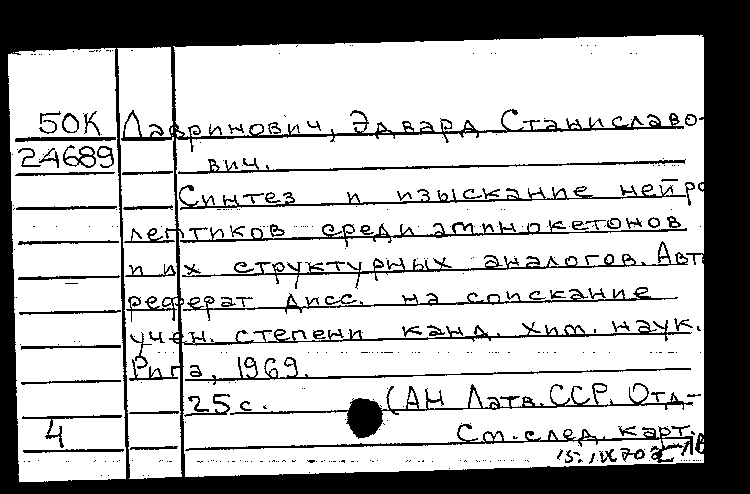 50К Лавринович, Эдвард Станиславо-
24689 вич.
Синтез и изыскание нейро
лептиков среди аминокетонов
и их структурных аналогов. Авто
реферат дисс. на соискание
учен. степени канд. хим. наук.
Рига, 1969.
25 с. (АН Латв. ССР. Отд-
4 См. след. карт.